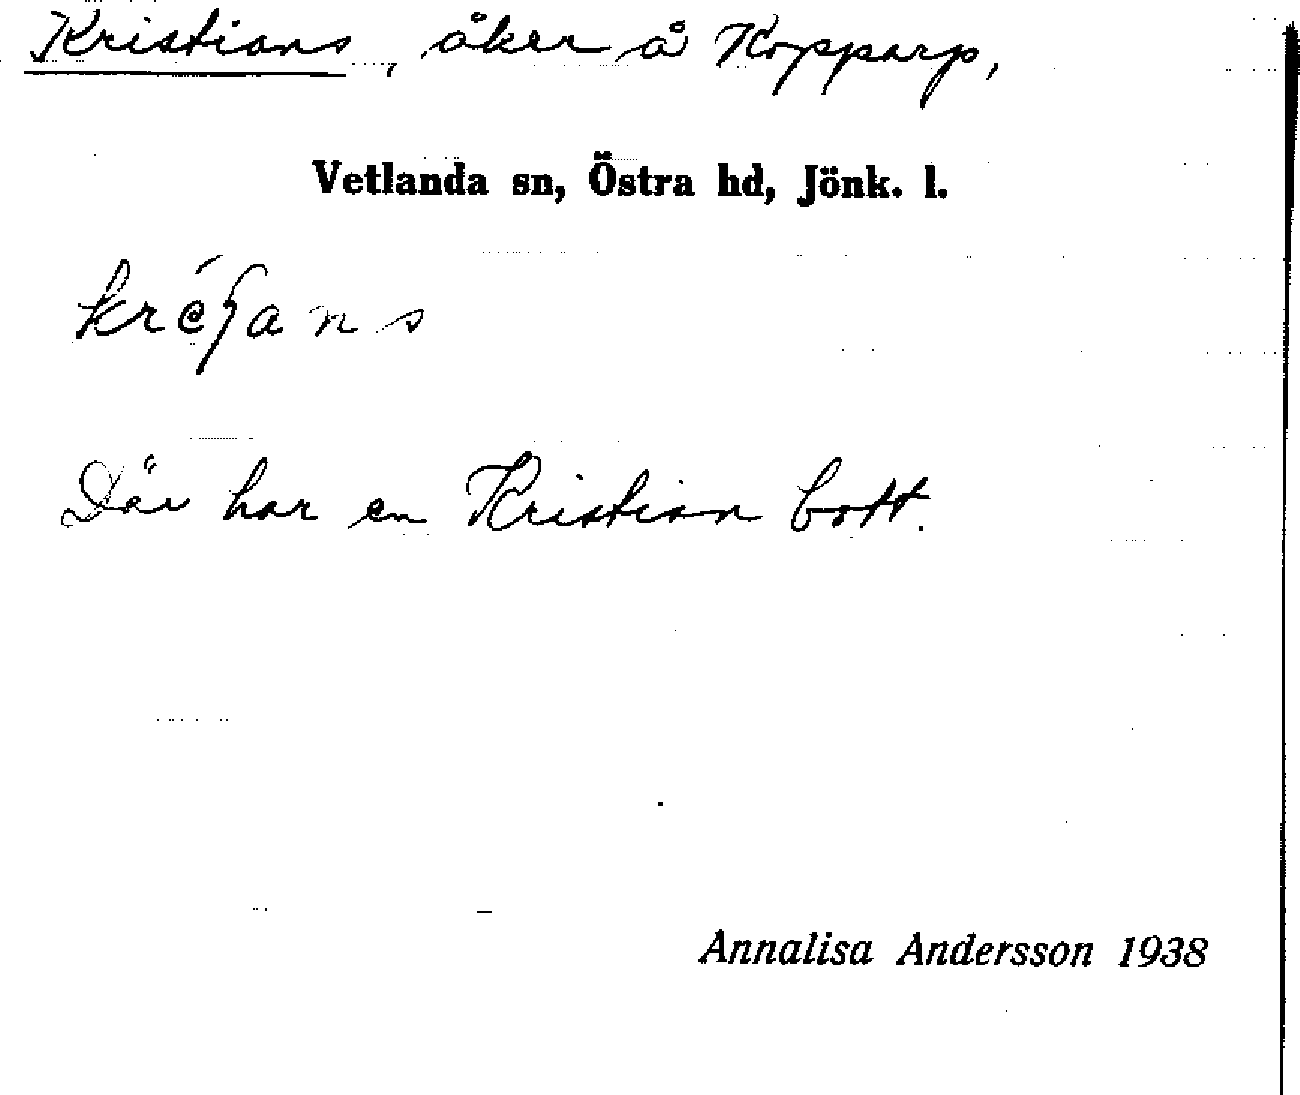 Kristians, åker å Kopparp,
Vetlanda sn, Östra hd, Jönk. l.
Där har en Kristian bott.
Annalisa Andersson 1938